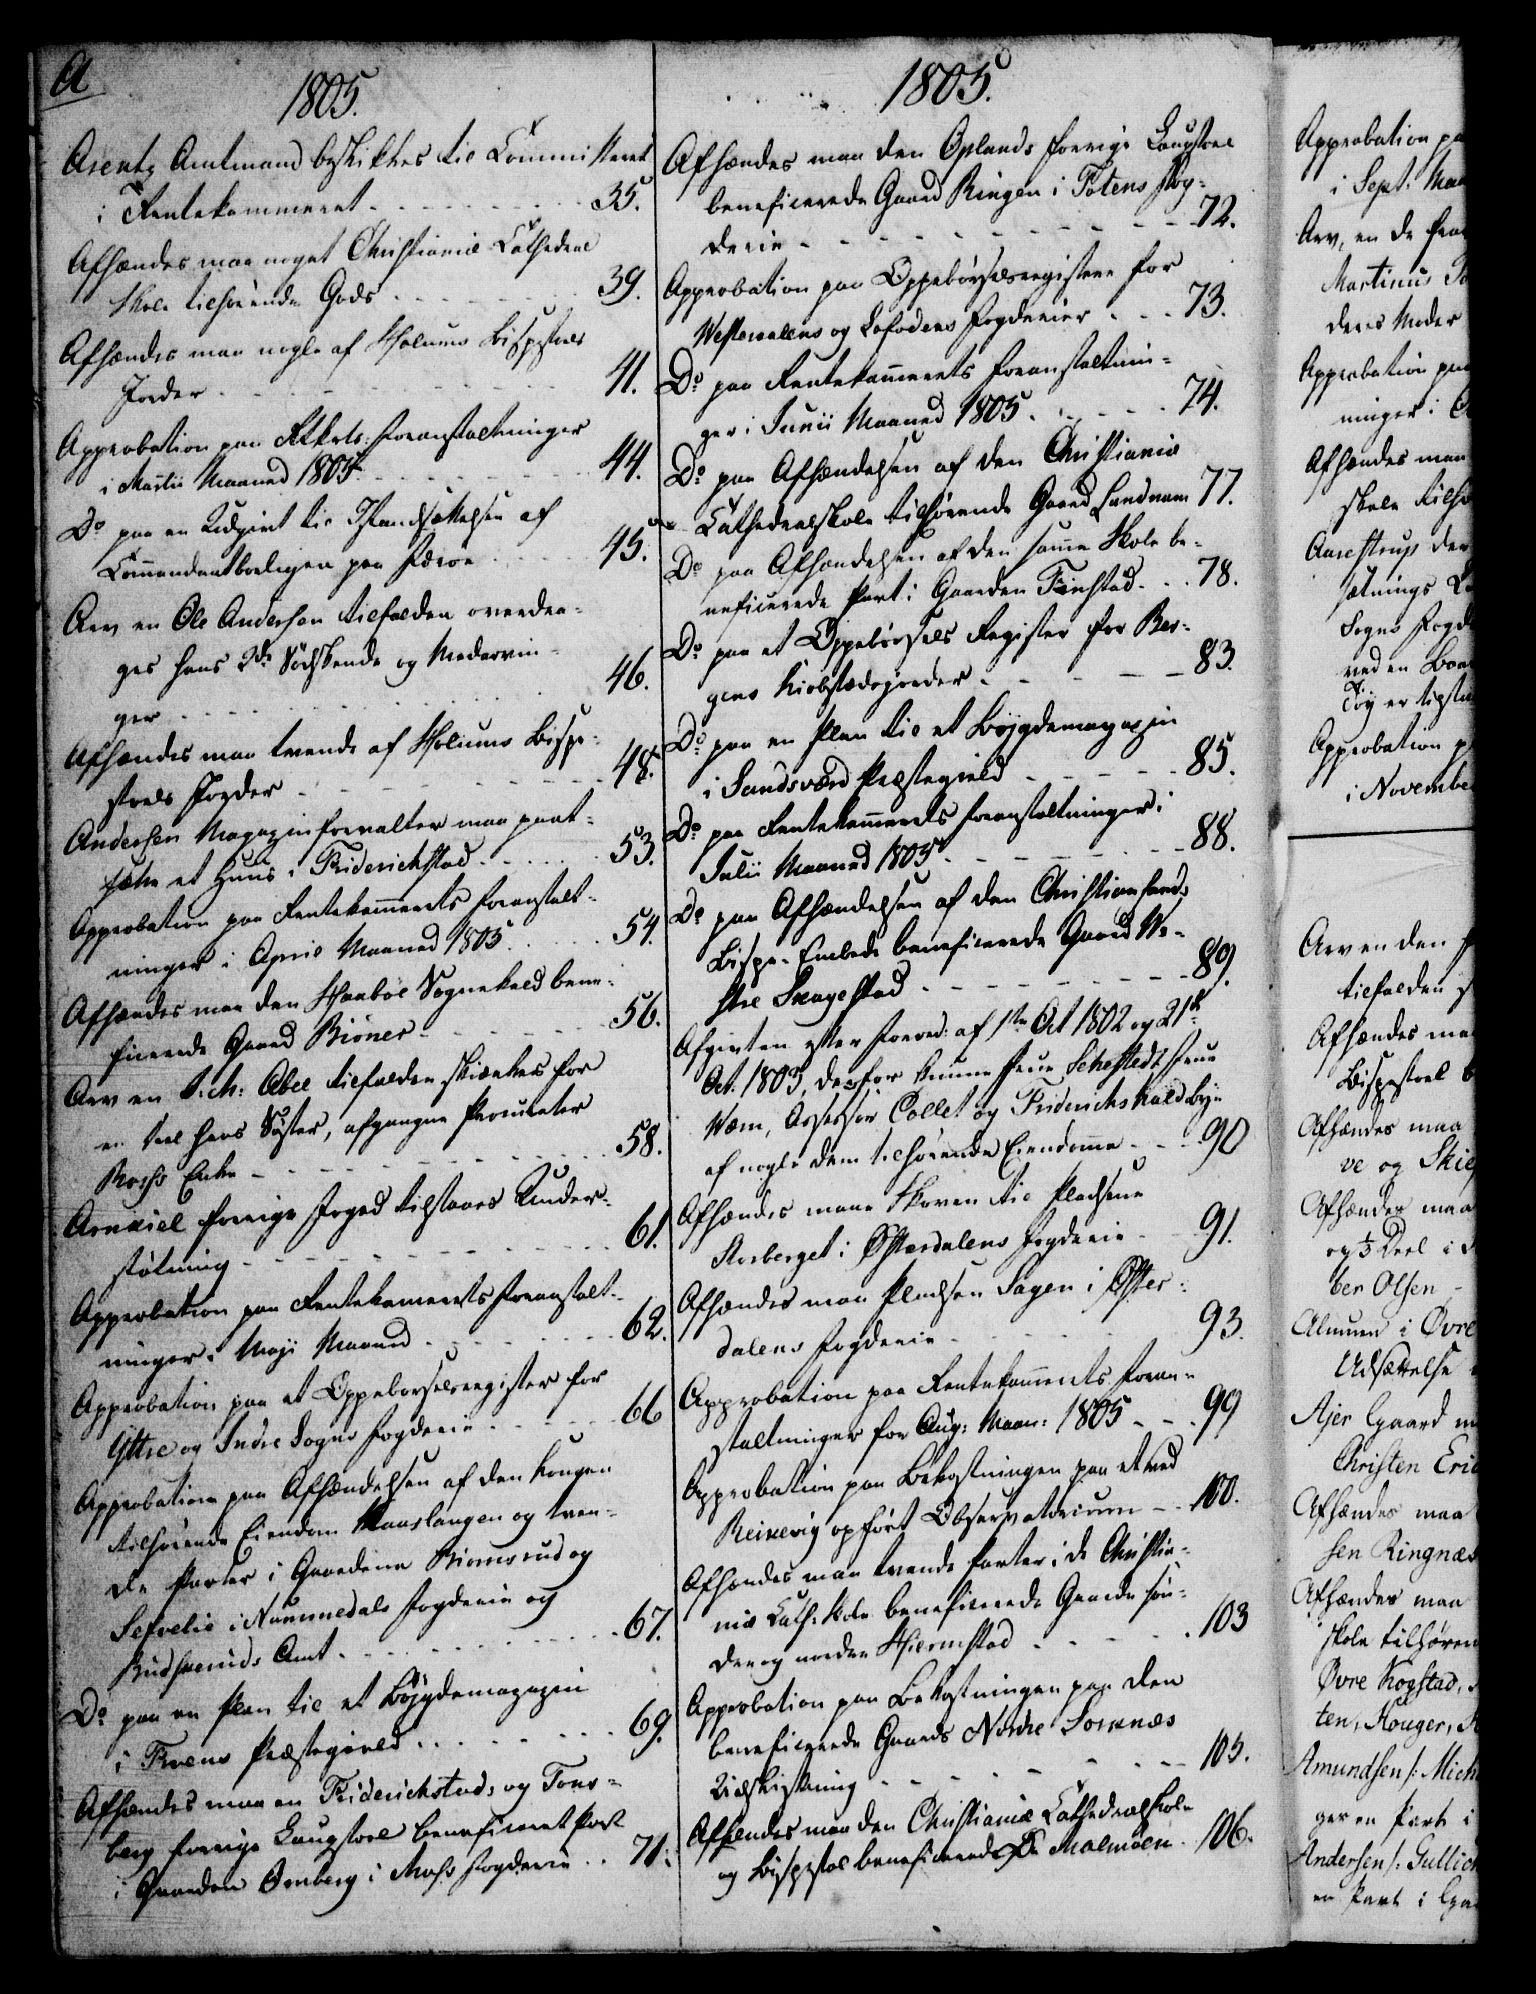 A
1805.
Arentz Amtmand beskikkes til Committeret
i Rentekammeret - - - - - - 35.
Afhændes maa noget Christianiæ Cathedral
Skole tilhørende Gods - - - - - 39.
Afhændes maa nogle af Holums Bispestoels
Jorder - - - - - - - 41.
Approbation paa Rtkrts: foranstaltninger
i Martii Maaned 1805. - - - - - 44.
Do paa en Udgivt til Istandsættelsen af
Commendantboeligen paa Færøe - - - 45.
Arv en Ole Andersen tilfalden overdra-
ges hans 2de Sødskende og
ger - - - - - - - 46.
Afhændes maa tvende af Holums Bispe-
stoels Jorder - - - - - - 48.
Andersen Magazinforvalter maa pant-
sætte et Huus i Friderichstad - - - - 53.
Approbation paa Rentekammerets foranstalt-
ninger i April Maaned 1805. - - - 54.
Afhændes maa den Haaboel Sognekald bene-
ficerede Gaard Biøner - - - - 56.
Arv en Abel tilfalden skienkes for
en deel hans Søster, afgangne Procurator
Enke - - - - - - 58.
Arnkiel forrige Foged tilstaaes Under-
støtning - - - - - - - 61.
Approbation paa Rentekamerets foranstalt-
ninger i Maji Maaned - - - - - 62.
Approbation paa et Oppebørselsregister for
Yttre og Indre Sogns Fogderie - - - 66
Approbation paa Afhændelsen af den Kongen
tilhørende Eiendom Maaslangen og tven-
de Parter i Gaardene Biørnsrud og
Sefvelie i Nummedals Fogderie og
Budskeruds Amt. - - - - - - 67.
Do paa en Plan til et Bøygdemagazin
i Froens Præstegield. - - - - - 69.
Afhændes maa en Friderichstads og Tons-
berg forrige Laugstoel beneficeret Part
i Gaarden Omberg i Moss Fogderie. - - 71.
1805.
Afhændes maa den Oplands forrige Laugstoel
beneficerede Gaard Ringen i Totens Fog-
derie - - - - - - - 72.
Approbation paa Oppebørselsregistere for
Westeraalens og Lofodens Fogderier - - - 73.
Do paa Rentekamerets foranstaltnin-
ger i Junii Maaned 1805. - - - - 74.
Do paa Afhændelsen af den Christianiæ
Cathedralskole tilhørende Gaard Landnam 77.
Do paa Afhændelsen af den samme Skole be-
neficerede Part i Gaarden Finstad. - - 78.
Do paa et Oppebørsels Register for Ber-
gens Kiøbstædsjorder - - - - - 83.
Do paa en Plan til et Bøygdemagazin
i Sandsværd Præstegield - - - - - 85.
Do paa Rentekamerets foranstaltninger i
Julii Maaned 1805 - - - - - - 88.
Do paa Afhændelsen af den Christiansands
Bispe-Embede beneficerede Gaard We-
stre Skagestad - - - - - - 89.
Afgivten efter Forord: af 1ste Oct 1802 og 21de
Oct. 1803, derfor kunne Frue Schestedt Frue
Wærn, Assessor Collet og Friderichshald Bye
af nogle dem tilhørende Eiendomme - - - 90
Afhændes maae Skoven til Pladsene
Storberget i Østerdalens Fogderie - - 91.
Afhændes maa Pladsen Sagen i Øster-
dalens Fogderie - - - - - 93.
Approbation paa Rentekamerets foran-
staltninger for Aug: Maan: 1805 - - - 99
Approbation paa Bekostningen paa et ved
Reikevig opført Observatorium - - 100.
Afhændes maa tvende Parter i de Christia-
niæ Cath: Skole beneficerede Gaarde søn-
dre og nordre Hiermstad - - - - - 103
Approbation paa Bekostningen paa den
beneficerede Gaards Nordre Sorknæs
Udskiftning - - - - - - - 105.
Afhændes maa den Christianiæ Cathedralskole
og Bispestol beneficerede Øe Malmøen - 106.
Approbation paa
i Sept. Maa
Arv, en de
Martinus
deres Moder
Approbation paa
ninger i
Afhændes maa
skole tilhø
Aarestrup der
sætnings
Sogns Fogd
ved en
Tøy er tilstaa
Approbation p
i November
Arv en den
tilfalden
Afhændes maa
Bispestoel
Afhændes maa
ve og Skie
Afhændes maa
og 1/3 Deel i
ber Olsen -
Almuen i Øvre
Udsættelse
Ajer Gaard m
Christen Eric
Afhændes maa
sen Ringnæs
Afhændes maa
skole tilhøren
Øvre Kogstad,
ten, Kouger,
Amundsen /: Mich
ger en Part i
Andersen /: Gullich
en Part i Gaa